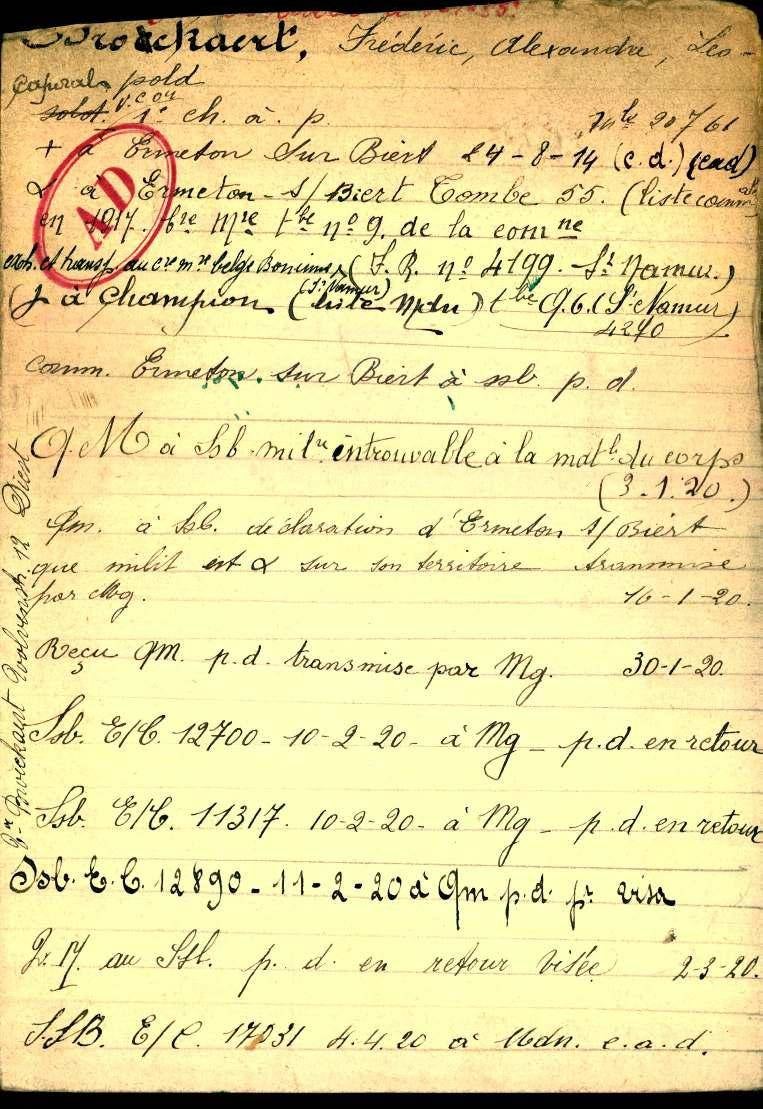 Broeckaert, Frédéric, Alexandre, Léo-
Caporal pold
soldt. 1r ch. à. p. Mle 20761
+ à Ermeton Sur Biert 24-8-14 (c.d.) (cad)
AD
à Ermeton-s/Biert Tombe 55. (liste comm
en 1917. tbe no 9. de la comne
exh. et transp. au cre mre belge Boninne (F.R. no 4199. St Namur.)
(J à Champion (liste Mdn) tbe Q.6. (St Namur)
(St Namur)
4290
comm. Ermeton sur Biert à ssb. p. d.
QM à Ssb milre introuvable à la matle du corps
(3.1.20.)
Qm. à Ssb. déclaration d'Ermeton s/Biert
que milit est sur son territoire transmise
par Mg. 16-1-20.
Reçu QM. p.d. transmise par Mg. 30-1-20.
Ssb. E/C. 12700- 10-2-20- à Mg - p.d. en retour
Ssb. E/C. 11317. 10-2-20- à Mg - p.d. en retour
Ssb. E.C. 12890-11-2-20 à Qm p.d. pr visa
au Ssb. p. d. en retour visée 2-3-20.
S.S.B. E/C. 17031 4.4.20 à Mdn. e.a.d.
Broeckaert 12 Diest